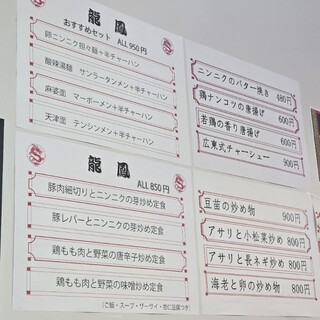 龍鳳
おすすめセット ALL950円
卵ニンニク担々麺+半チャーハン
酸辣湯麺 サンラータンメン+半チャーハン
麻婆面 マーボーメン+半チャーハン
天津面 テンシンメン+半チャーハン
ニンニクのバター焼き 480円
鶏ナンコツの唐揚げ 600円
若鶏の香り唐揚げ 600円
広東式チャーシュー 900円
龍鳳
ALL850円
豚肉細切りとニンニクの芽炒め定食
豚レバーとニンニクの芽炒め定食
鶏もも肉と野菜の唐辛子炒め定食
鶏もも肉と野菜の味噌炒め定食
(ご飯・スープ・ザーサイ・杏仁豆腐つき)
豆苗の炒め物 900円
アサリと小松菜炒め 800円
アサリと長ネギ炒め 800円
海老と卵の炒め物 800円